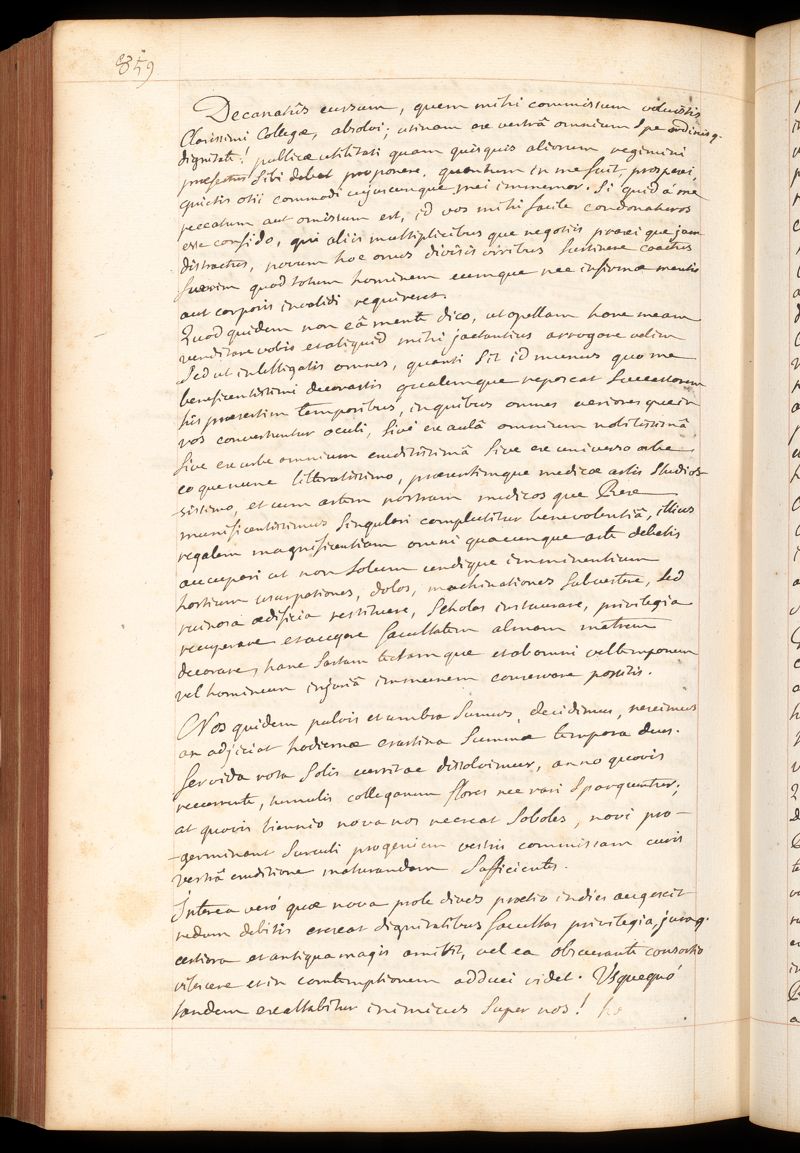 859
Decanatûs cursum, quem mihi commissum voluistis
Clarissimi Collegæ, absolvi; utinam ex vestrâ omnium spe ordinisq.
dignitate! publicæ utilitati quam quisquis aliorum regimini
præfectus sibi debet proponere, quantum in me fuit, prospexi,
quietis otii commodi cujuscunque mei immemor. Si quid à me
peccatum aut omissum est, id vos mihi facile condonaturos
esse confido, qui aliis multiplicibus que negotiis praxi que jam
distractus, novum hoc onus divisis viribus sustinere coactus
fuerim quod totum hominem eumque nec infirmæ mentis
aut corporis invalidi requireret.
Quod quidem non eâ mente dico, ut opellam hanc meam
venditare vobis et aliquid mihi jactantius arrogare velim
sed ut intelligatis omnes, quanti sit id munus quo me
beneficentissimi decorastis qualemque reposcat successorem
his præsertim temporibus, in quibus omnes
vos convertuntur oculi, sive ex aulâ omnium nobilissimâ
sive ex urbe omnium eruditissimâ sive ex universo orbe
eo que nunc litteratissimo, præsentimque medicæ artis studio
sissimo, et cum artem nostram medicos que Rex
munificentissimus singulari complectitur benevolentiâ, illius
regalem magnificentiam omni quacunque arte debetis
aucupari ut non solum undique imminentium
hostium usurpationes, dolos, machinationes subvertere, sed
ruinosa ædificia restituere, scholas instaurare, privilegia
recuperare et augere facultatem almam matrem
decorare, hanc sartam tectam que et ab omni vel temporum
vel hominum injuriâ immunem conservare possitis.
Nos quidem pulvis et umbra sumus, decidimus, nescimus
an adjiciat hodiernæ crastina summæ tempora deus.
fervida rota solis cursitæ dissolvimur, anno quovis
recurrente, tumulis collegarum flores nec rari sparguntur;
at quovis biennio nova nos recreat soboles, novi pro-
-germinant surculi progeniem vestris commissam curis
vestrâ eruditione maturandam sufficientes.
Interea verò quæ nova prole dives pretio indies augescit
nedum debitis crescat dignitatibus facultas privilegia, juraq.
certiora et antiqua magis amittit, vel ea obscurante consortio
vilescere et in comtemptionem adduci videt. Usquequò
tandem exaltabitur inimicus super nos!